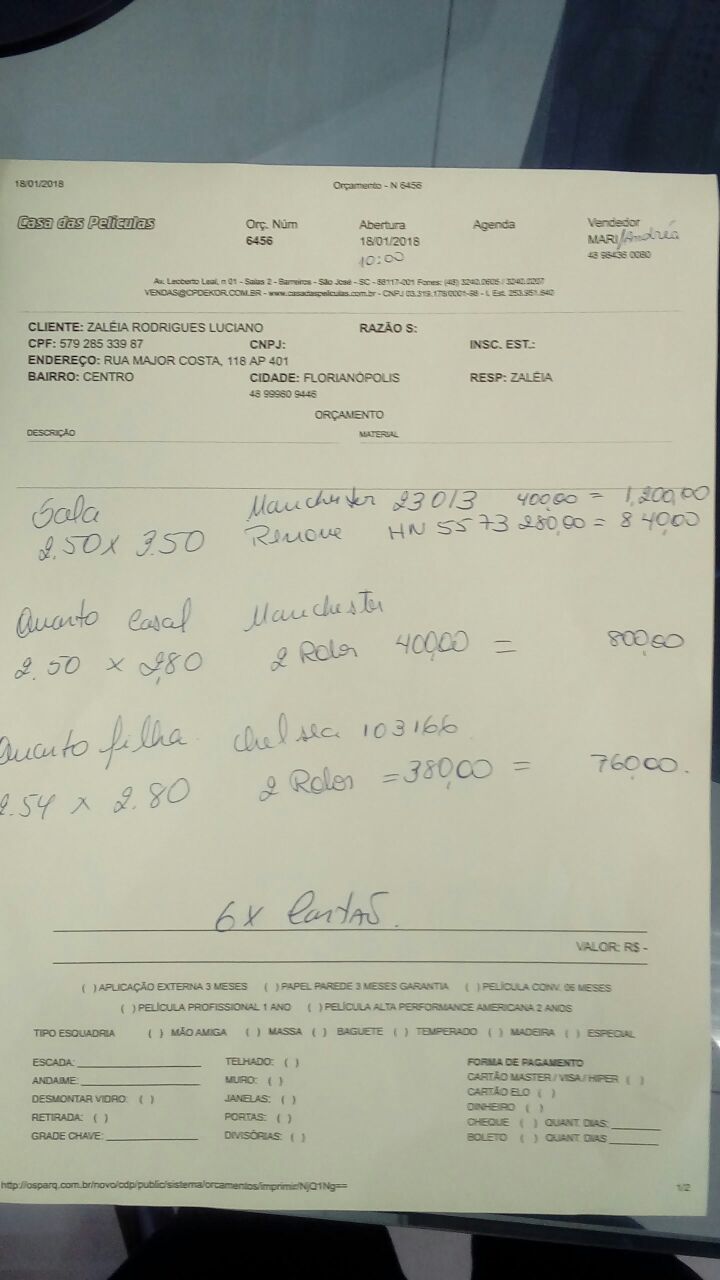 18/01/2018 Orçamento - N 6456
Casa das Películas Orç. Núm Abertura Agenda Vendedor
6456 18/01/2018 MARI/Andréa
10:00 48 98436 0080
Av. Leoberto Leal, n 01 - Salas 2 - Barreiros - São José - SC - 88117-001 Fones: (48) 3240.0605 / 3240.2207
VENDAS@CPDEKOR.COM.BR - www.casadaspeliculas.com.br - CNPJ 03.319.178/0001-98 - I. Est. 253.951.640
CLIENTE: ZALÉIA RODRIGUES LUCIANO RAZÃO S:
CPF: 579 285 339 87 CNPJ: INSC. EST.:
ENDEREÇO: RUA MAJOR COSTA, 118 AP 401
BAIRRO: CENTRO CIDADE: FLORIANÓPOLIS RESP: ZALÉIA
48 99980 9446
ORÇAMENTO
DESCRIÇÃO MATERIAL
Sala Manchester 23013 400,00 = 1,200,00
2.50 x 3.50 Renove HN 5573 280,00 = 840,00
Quarto Casal Manchester
2.50 x 2,80 2 Rolos 400,00 = 800,00
Quarto filha. Chelsea 103166
2.54 x 2.80 2 Rolos = 380,00 = 760,00.
6x Cartão.
VALOR: R$ -
( ) APLICAÇÃO EXTERNA 3 MESES ( ) PAPEL PAREDE 3 MESES GARANTIA ( ) PELÍCULA CONV. 06 MESES
( ) PELÍCULA PROFISSIONAL 1 ANO ( ) PELÍCULA ALTA PERFORMANCE AMERICANA 2 ANOS
TIPO ESQUADRIA ( ) MÃO AMIGA ( ) MASSA ( ) BAGUETE ( ) TEMPERADO ( ) MADEIRA ( ) ESPECIAL
ESCADA: TELHADO: ( ) FORMA DE PAGAMENTO
ANDAIME: MURO: ( ) CARTÃO MASTER / VISA / HIPER ( )
DESMONTAR VIDRO: ( ) JANELAS: ( ) CARTÃO ELO ( )
RETIRADA: ( ) PORTAS: ( ) DINHEIRO ( )
GRADE CHAVE: DIVISÓRIAS: ( ) CHEQUE ( ) QUANT. DIAS:
BOLETO ( ) QUANT. DIAS
http://osparq.com.br/novo/cdp/public/sistema/orcamentos/imprimir/NjQ1Ng== 1/2